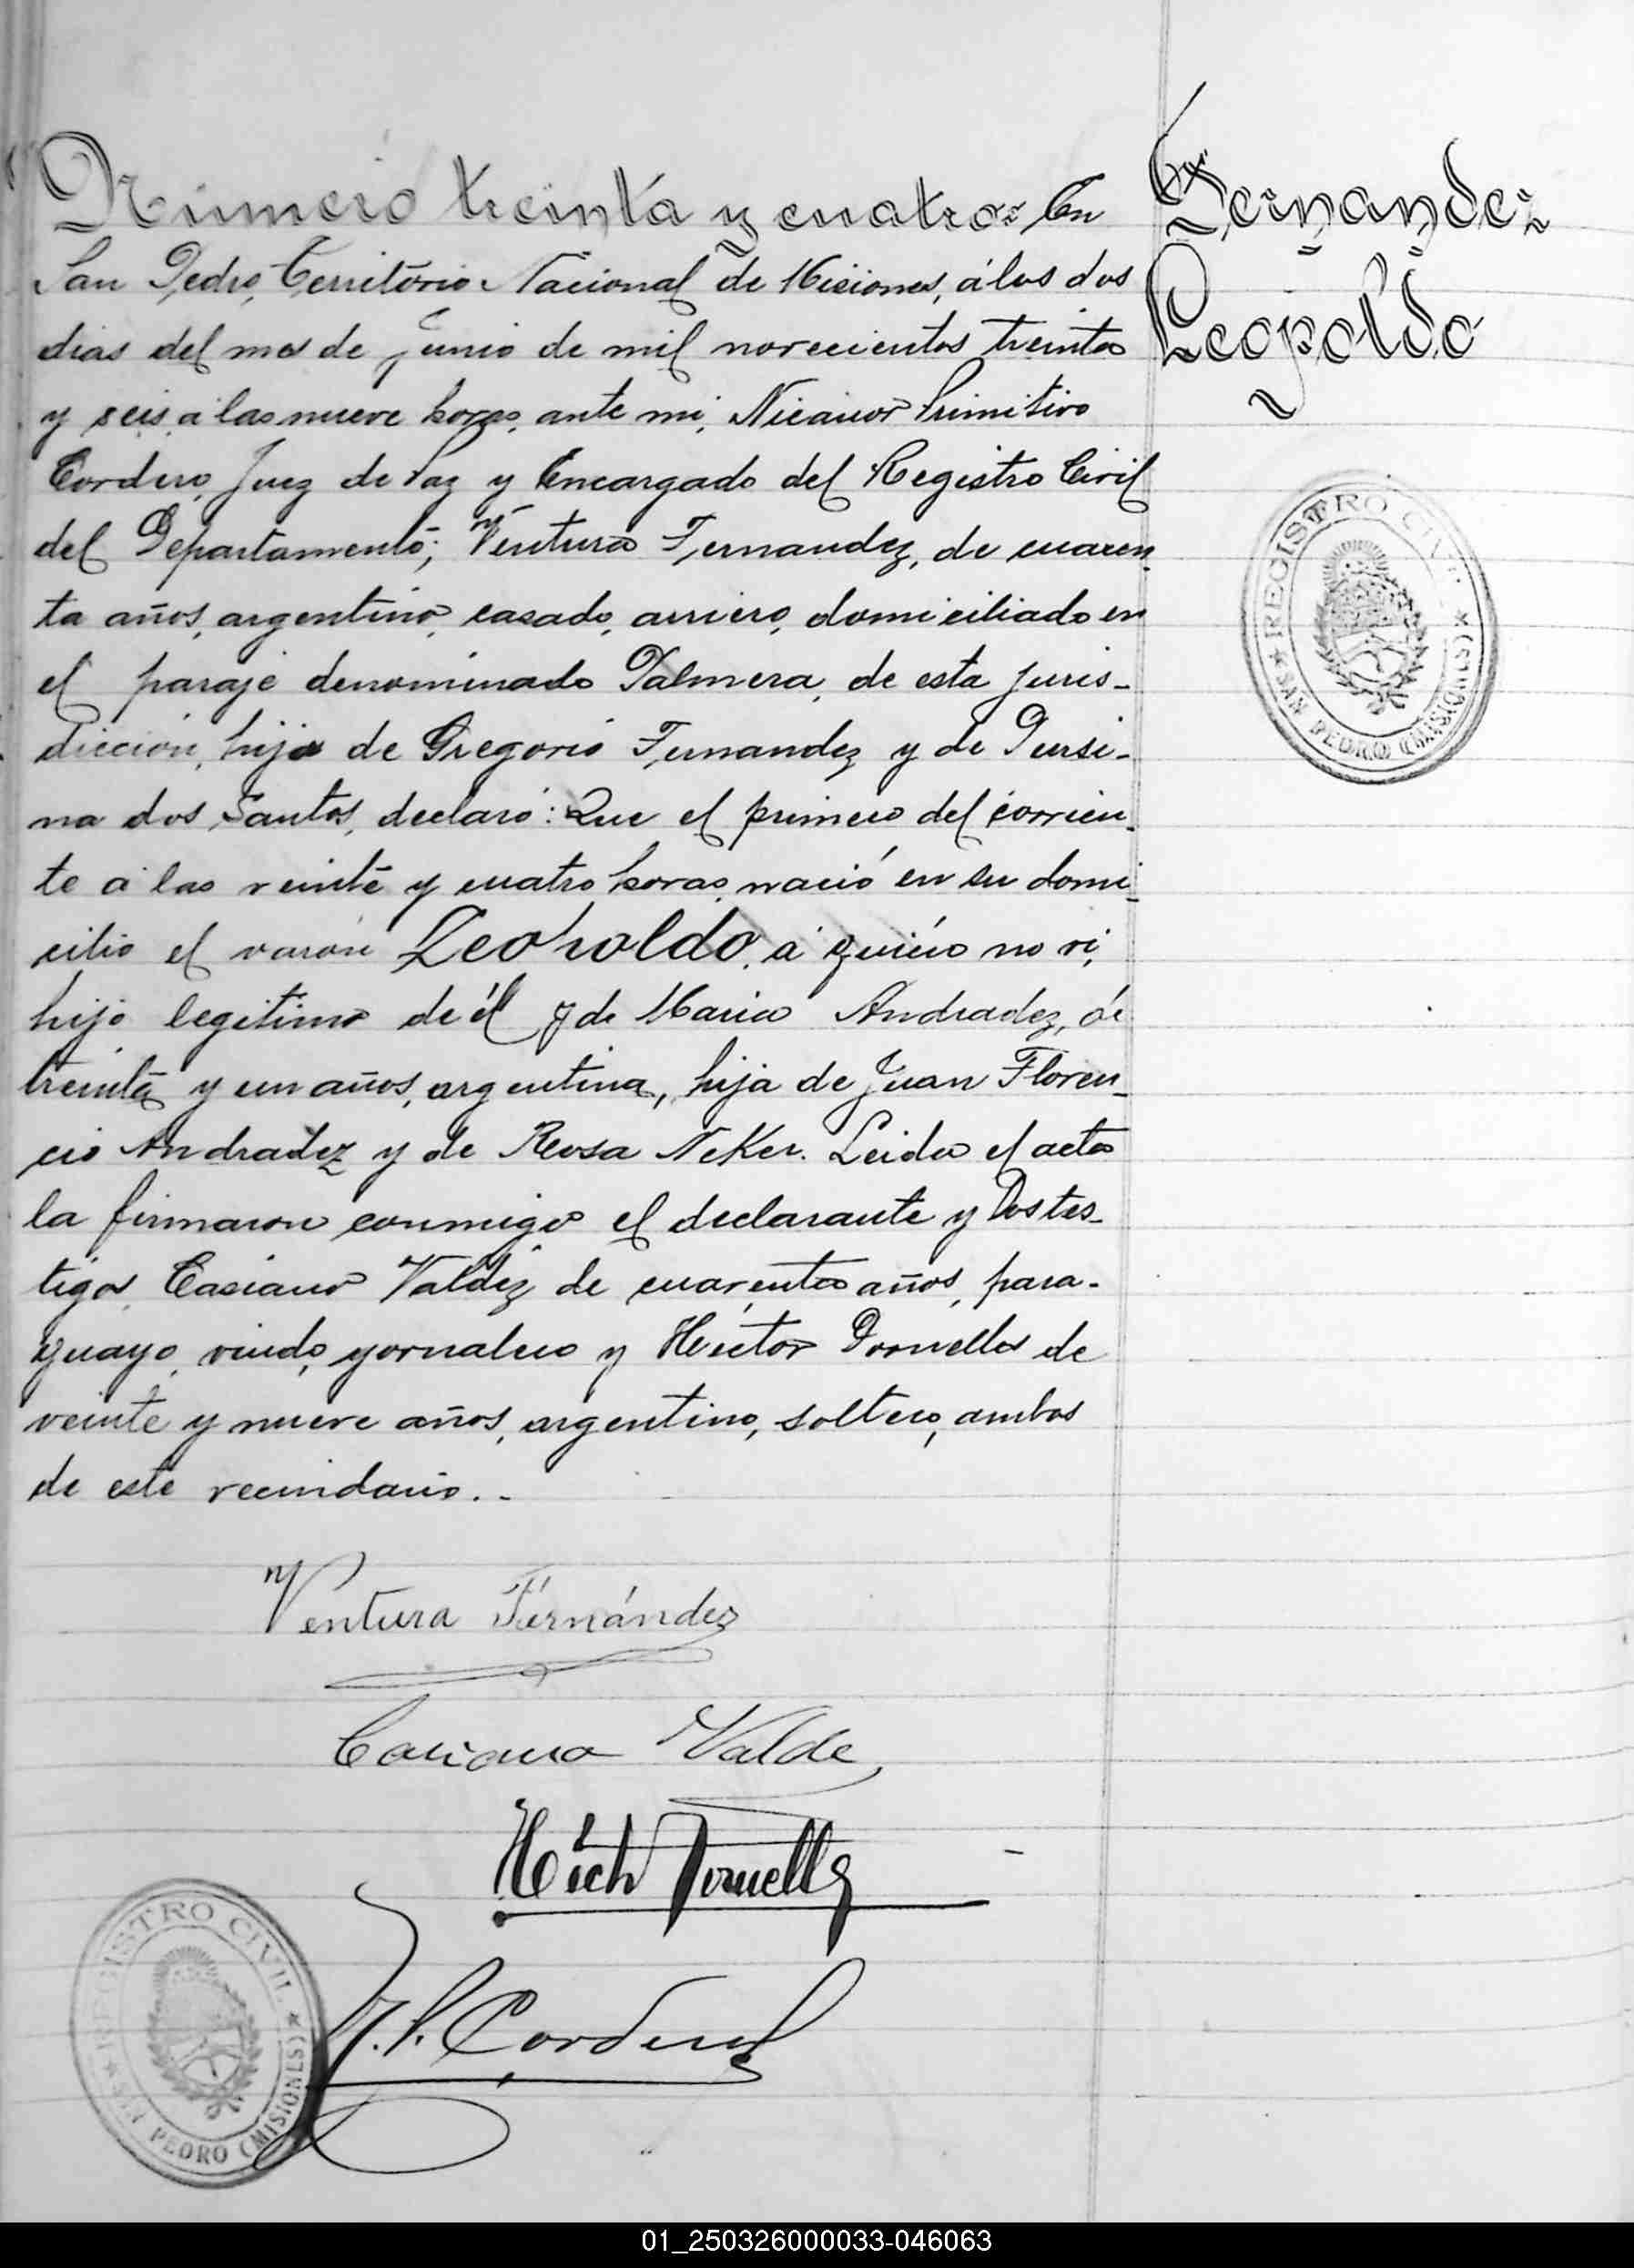 Número treinta y cuatro: En
San Pedro, Territorio Nacional de Misiones, á los dos
dias del mes de Junio de mil novecientos treinta
y seis, a las nueve horas, ante mi, Nicanor Primitivo
Cordero, Juez de Paz y Encargado del Registro Civil
del Departamento; Ventura Fernandez, de cuaren-
ta años, argentino, casado, arriero, domiciliado en
el paraje denominado Palmera, de esta juris-
dicción, hijo de Gregorio Fernandez y de Pursi-
na dos Santos, declaró: Que el primero del corrien-
te a las veinte y cuatro horas, nació en su domi-
cilio el varón Leopoldo, a quién no vi,
hijo legitimo de él y de Maria Andradez, de
treinta y un años, argentina, hija de Juan Floren-
cio Andradez y de Rosa NeKer. Leida el acta
la firmaron conmigo el declarante y los tes-
tigos Casiano Valdez de cuarenta años, para-
guayo, viudo, yornalero y Héctor Dornelles de
veinte y nueve años, argentino, soltero, ambos
de este vecindario. -
Fernandez
Leopoldo
REGISTRO CIVIL
SAN PEDRO (MISIONES)
Ventura Fernández
Casiano Valde
N. P. Cordero
REGISTRO CIVIL
SAN PEDRO (MISIONES)
01_250326000033-046063